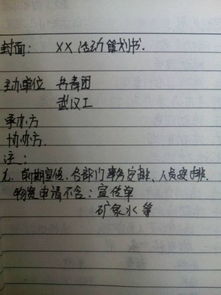 封面： XX活动策划书.
主办单位 共青团
武汉工
承办方
协办方
注：
前期宣传、各部门事务安排、人员安排.
物资申请不含：宣传单
矿泉水等